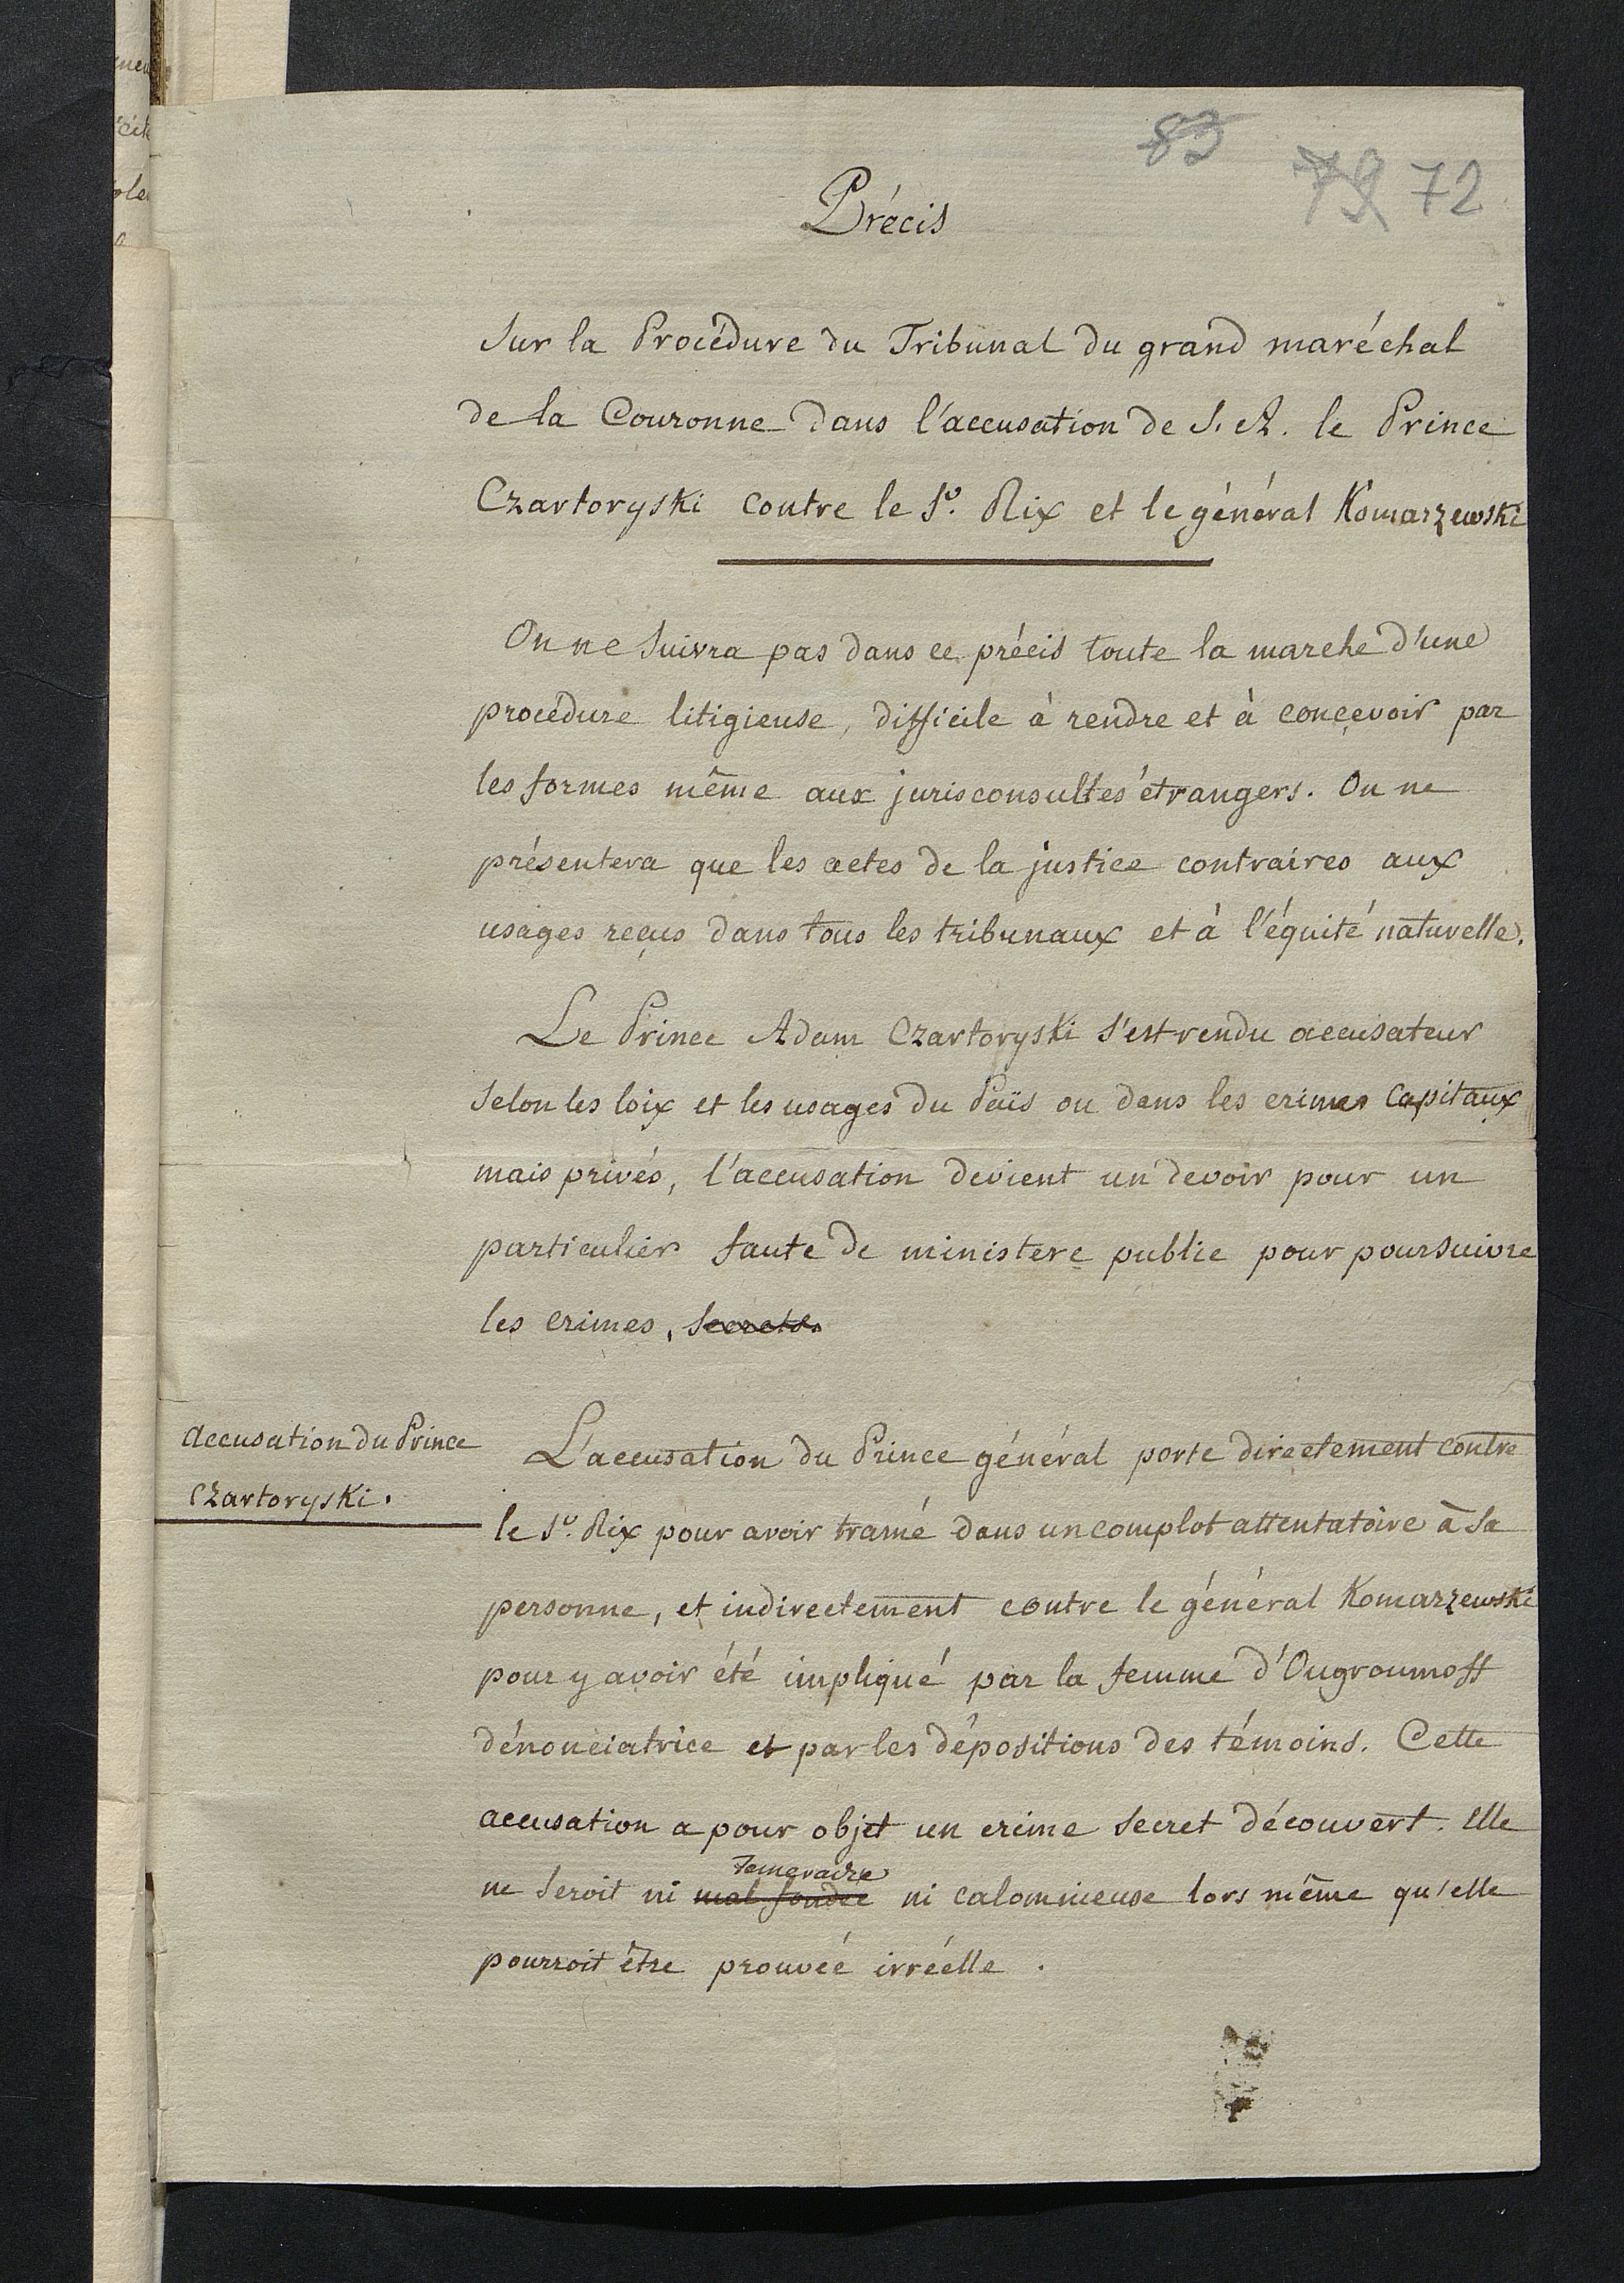 83
79 72
Précis
sur la Procédure du Tribunal du grand maréchal
de la Couronne dans l'accusation de S. A. le Prince
Czartoryski contre le Sr. Rix et le général Komarzewski
On ne suivra pas dans ce précis toute la marche d'une
procédure litigieuse, difficile à rendre et à conçevoir par
les formes même aux jurisconsultes étrangers. On ne
présentera que les actes de la justice contraires aux
usages reçus dans tous les tribunaux et à l'équité naturelle.
Le Prince Adam Czartoryski s'est rendu accusateur
selon les loix et les usages du Païs ou dans les crimes capitaux
mais privés, l'accusation devient un devoir pour un
particulier faute de ministere public pour poursuivre
les crimes, secrets.
Accusation du Prince
Czartoryski.
L'accusation du Prince général porte directement contre
le Sr. Rix pour avoir tramé dans un complot attentatoire à sa
personne, et indirectement contre le général Komarzewski
pour y avoir été impliqué par la femme d'Ougroumoff
dénonciatrice et par les dépositions des témoins. Cette
accusation a pour objet un crime secret découvert. Elle
temeraire
ne seroit ni mal fondée ni calomnieuse lors même qu'elle
pourroit être prouvéé irréélle.